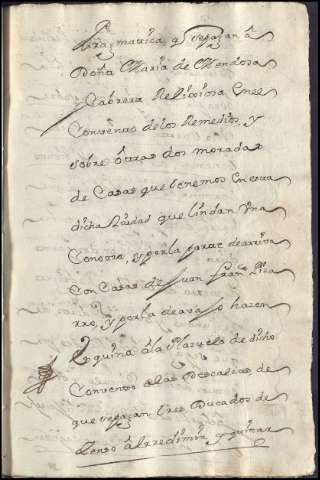 Pragmatica q se pagan â
Doña Maria de Mendosa
y Cabrera Religiosa en el
Convento de los Remedios, y
sobre ôtras dos moradas
de Casas que tenemos en esta
dicha que lindan Una
Con otra, y por la parte de arriva
Con Casas de Juan Fran.co
y por la de avaxo hazen
Esquina â la Plazuela de dicho
Convento de
que se pagan tres Ducados de
Zenso â l redimir y quitar